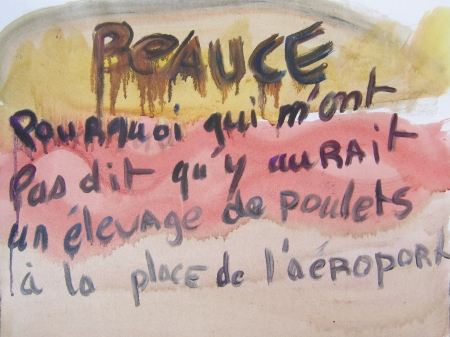 BEAUCE
POURQUOI qui m'ont
Pas dit qu'y auRAit
un élevage de poulets
à la place de l'aéroport